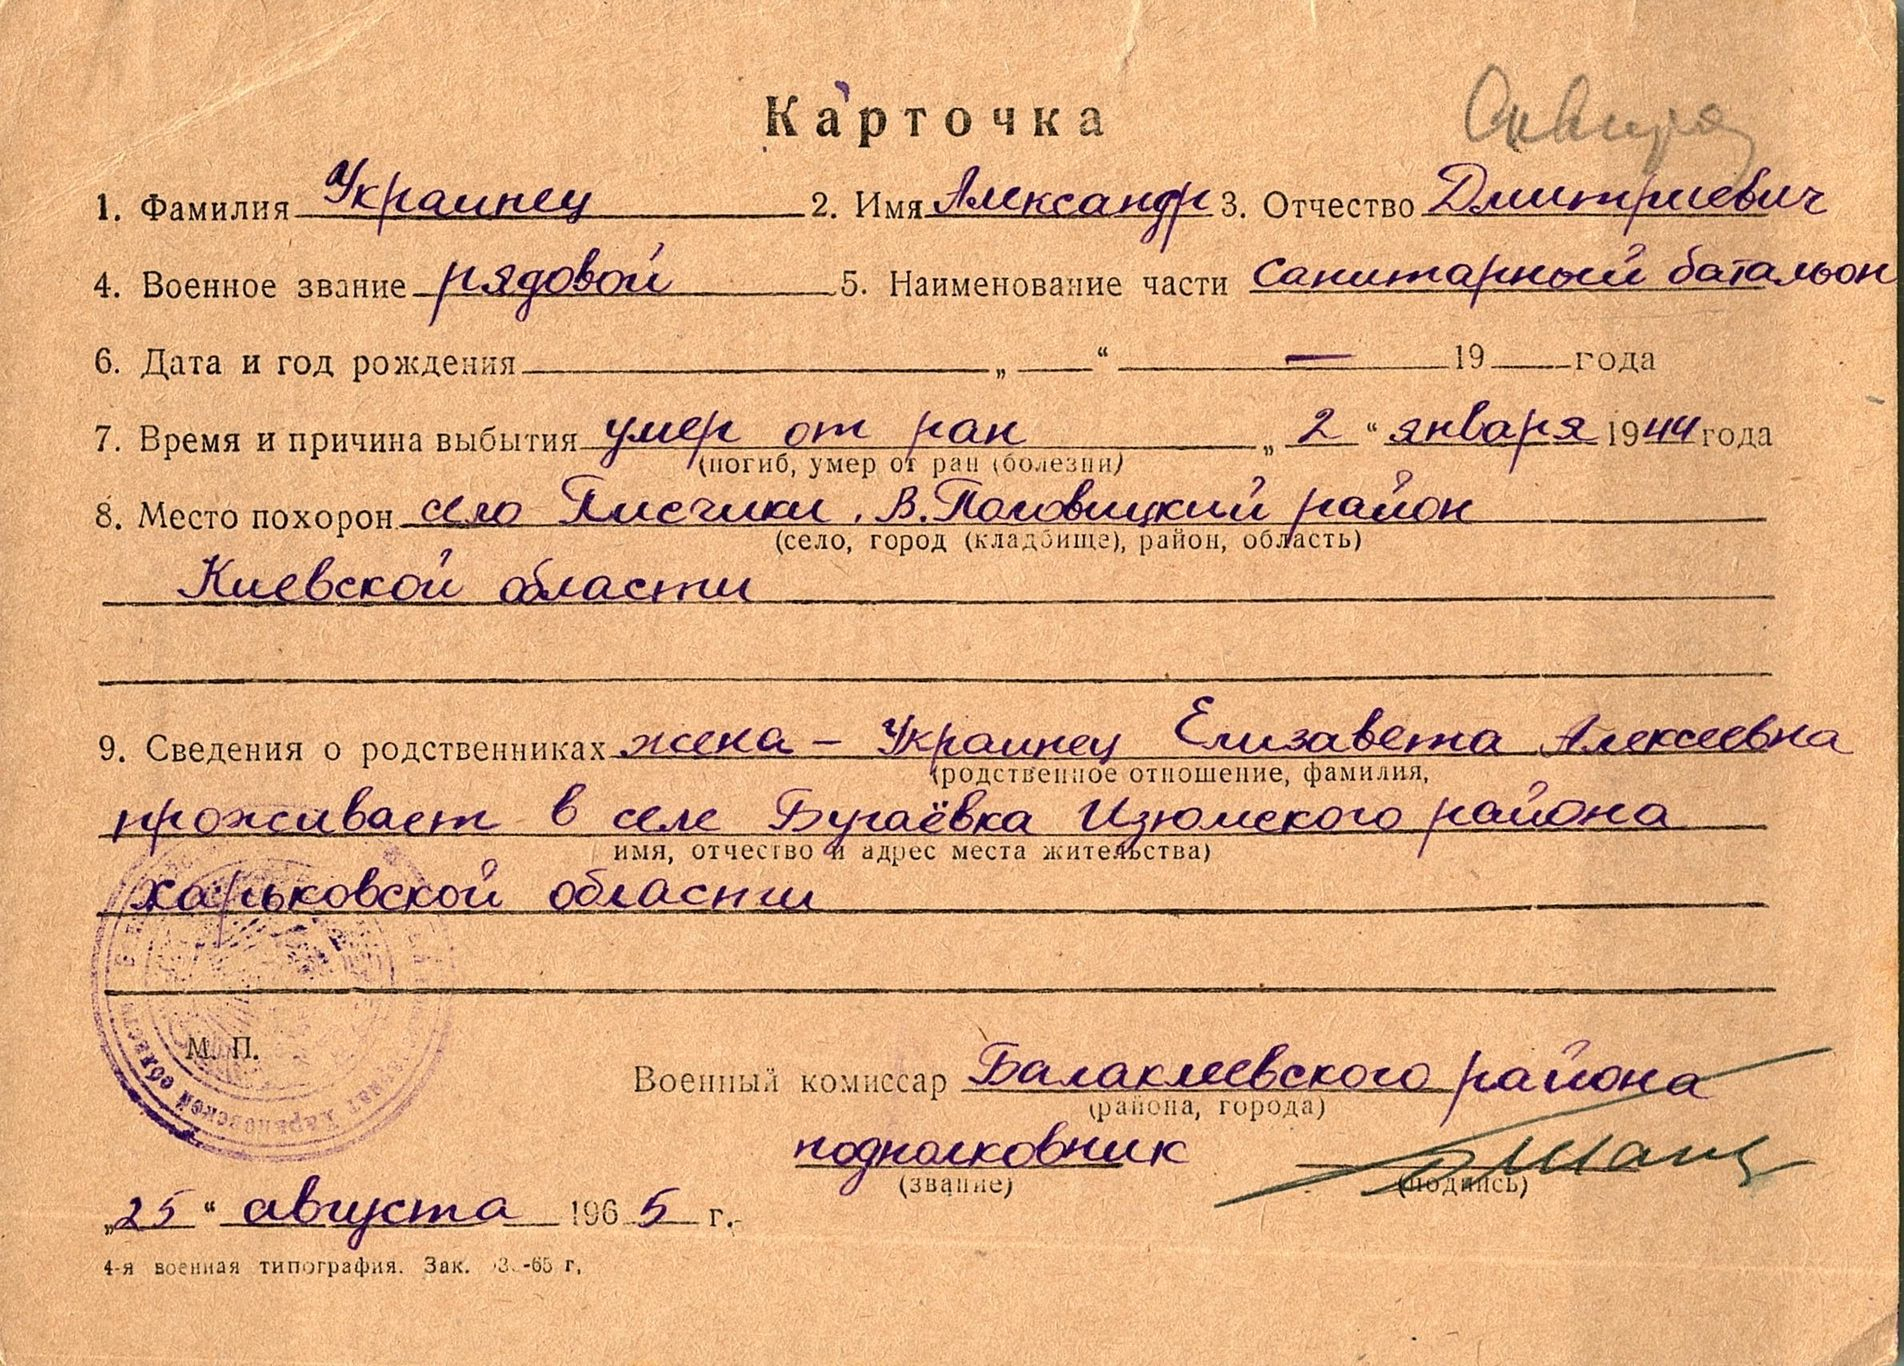 Карточка
Сквира
1. Фамилия Украинец 2. Имя Александр 3. Отчество Дмитриевич
4. Военное звание рядовой 5. Наименование части санитарный батальон
6. Дата и год рождения „ “ — 19 года
7. Время и причина выбытия умер от ран „ 2 “ января 1944 года
(погиб, умер от ран (болезни)
8. Место похорон село Писчики, В.Половецкий район
(село, город (кладбище), район, область)
Киевской области
9. Сведения о родственниках жена – Украинец Елизавета Алексеевна
(родственное отношение, фамилия,
проживает в селе Бугаёвка Изюмского района
имя, отчество и адрес места жительства)
харьковской области
М. П.
Харьковской области
Военный комиссар Балаклеевского района
(района, города)
подполковник
(звание) (подпись)
„25“ августа 1965 г.
4-я военная типография. Зак. -65 г.